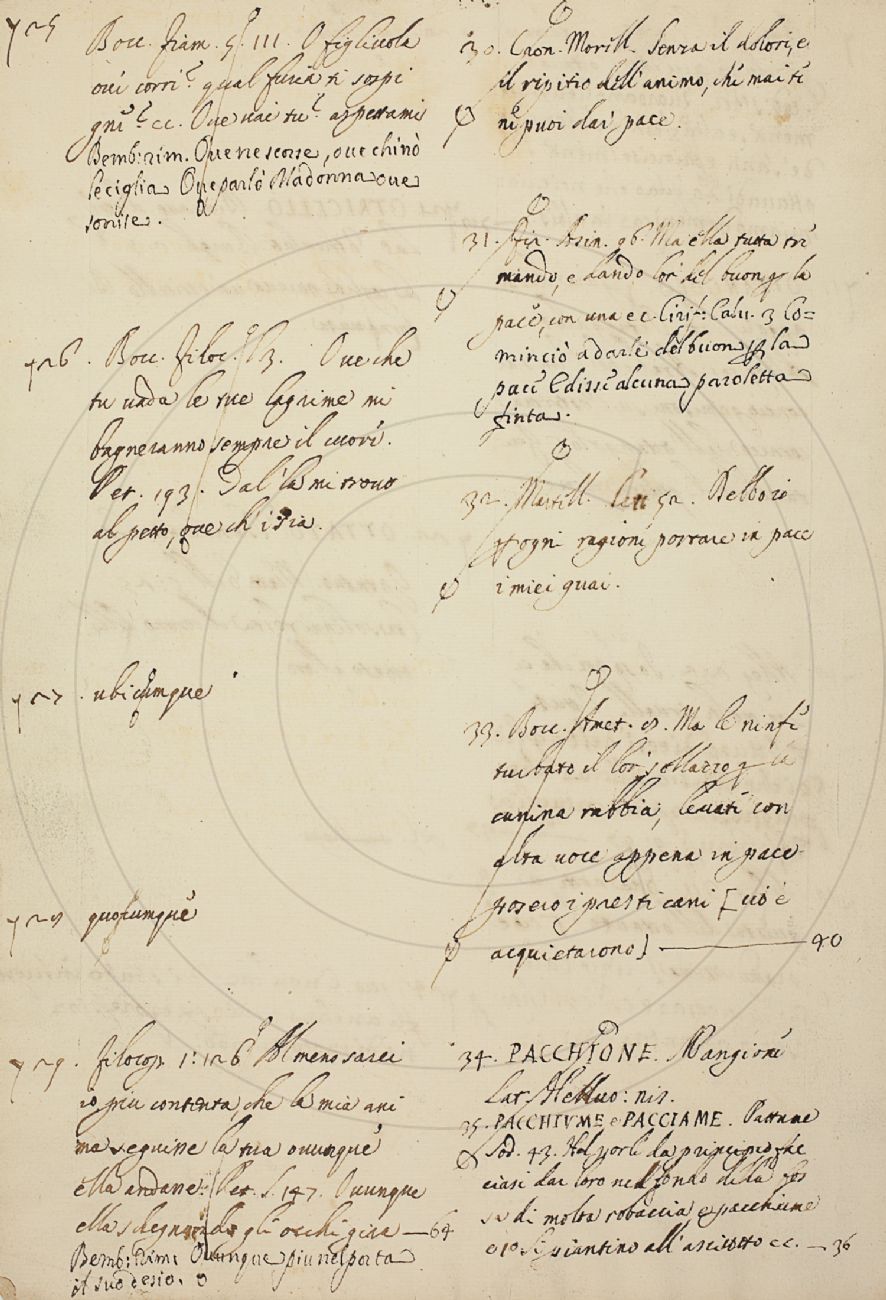 725 Bocc. Fiam. l. III. O figliuola
oue corri? qual furia ti sospi
gne? ec. Oue uai tu? aspettami
Bemb: rim. Oue ne scorse, oue chinò
le ciglia Oue parlò Madonna oue
sorrise.
726. Bocc. Filoc. l. 3. Oue che
tu uada le tue lagrime mi
bagneranno sempre il cuore.
Pet. 193. Dal la mi trouo
al petto, oue ch'i sia.
727. ubicumque
728 quocumque
729. Filocop. 1: 126 Almeno sarei
io piu contenta che la mia ani
ma seguisse la tua ouunque
ella andasse: Pet. S. 147. Ouunque
ella sdegnando gli occhi gira — 64
Bemb: Rim: Ouunque piu nel porta
il suo desio.
30. Cron. Morell. Senza il dolore, e
il ripitio dell'animo, che mai ti
ne puoi dar pace.
31. Fir. Asin. 96. Ma ella tutta tre
mando, e dando lor del buon per la
pace, con una ec. Cirif: Calu. 3 Co=
minciò a darle del buon per la
pace E disse alcuna paroletta
finta.
32. Debbo io
per ogni ragione portare in pace
i miei guai.
33. Bocc. Amet. Ma le ninfe
turbato il lor sollazzo per
canina rabbia, leuate con
alta uoce appena in pace
posero i presti cani [ cio è
acquietarono] — 40
34. PACCHIONE. Mangione
Lat. Helluo: nis.
35. PACCHIVME e PACCIAME.
Sod. 43.
ciasi dar loro nel fondo della fos
sa di molta robaccia e pacchiume
all'asciutto ec. — 36